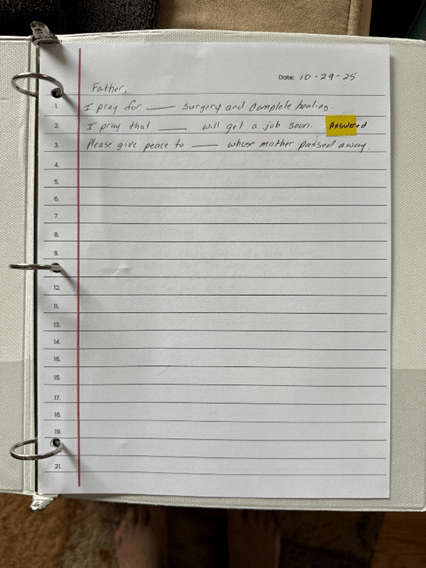 Date: 10-29-25
Father,
1. I pray for ___ surgery and complete healing.
2. I pray that ___ will get a job soon. Answered
3. Please give peace to ___ whose mother passed away.
4.
5.
6.
7.
8.
9.
12.
11.
13.
14.
16.
15.
17.
18.
19.
21.